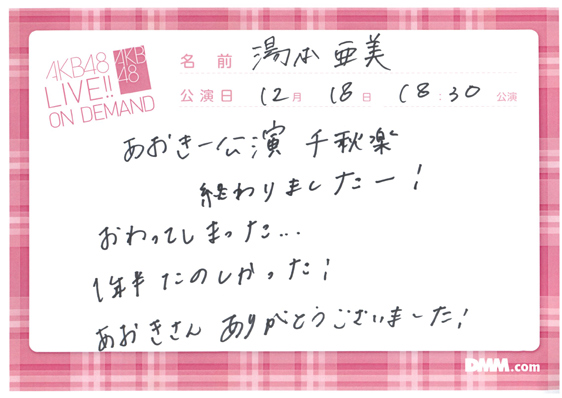 AKB48
LIVE!!
ON DEMAND
AKB
48
名前 湯本亜美
公演日 12月 18日 18:30 公演
あおきー公演 千秋楽
終わりましたー!
おわってしまった...
1年半 たのしかった!
あおきさん ありがとうございました!
DMM.com